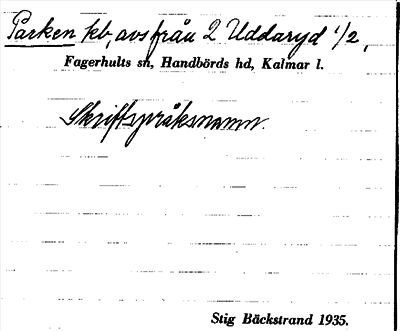 Parken kb, avs från 2 Uddaryd 1/2,
Fagerhults sn, Handbörds hd, Kalmar l.
Skriftspråksnamn.
Stig Bäckstrand 1935.